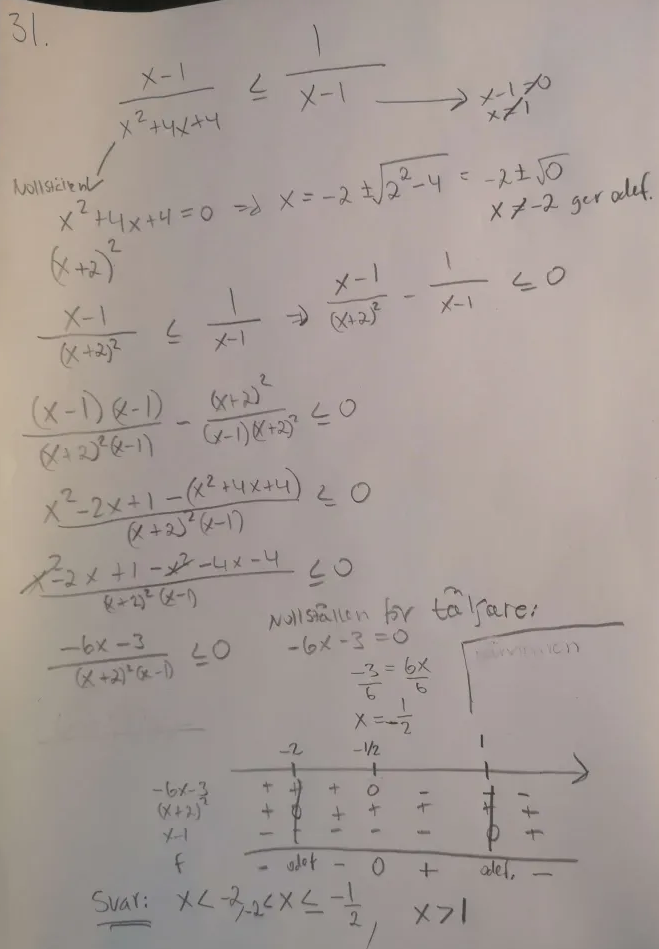 31.
x-1/(x²+4x+4) ≤ 1/(x-1) → x-1≠0
x≠1
Nollställen
x²+4x+4=0 => x = -2 ± √(2²-4) = -2 ± √0
x≠-2 ger odef.
(x+2)²
(x-1)/(x+2)² ≤ 1/(x-1) => (x-1)/(x+2)² - 1/(x-1) ≤ 0
(x-1)(x-1)/((x+2)²(x-1)) - (x+2)²/((x-1)(x+2)²) ≤ 0
(x²-2x+1-(x²+4x+4))/((x+2)²(x-1)) ≤ 0
(x²-2x+1-x²-4x-4)/((x+2)²(x-1)) ≤ 0
Nollställen för täljare:
(-6x-3)/((x+2)²(x-1)) ≤ 0
-6x-3=0
-3/6 = 6x/6
x = -1/2
-2 -1/2 1
-6x-3 + + + 0 - - -
(x+2)² + 0 + + + + +
x-1 - - - - - 0 +
f - odef - 0 + odef. -
Svar: x<-2, -2<x≤-1/2, x>1